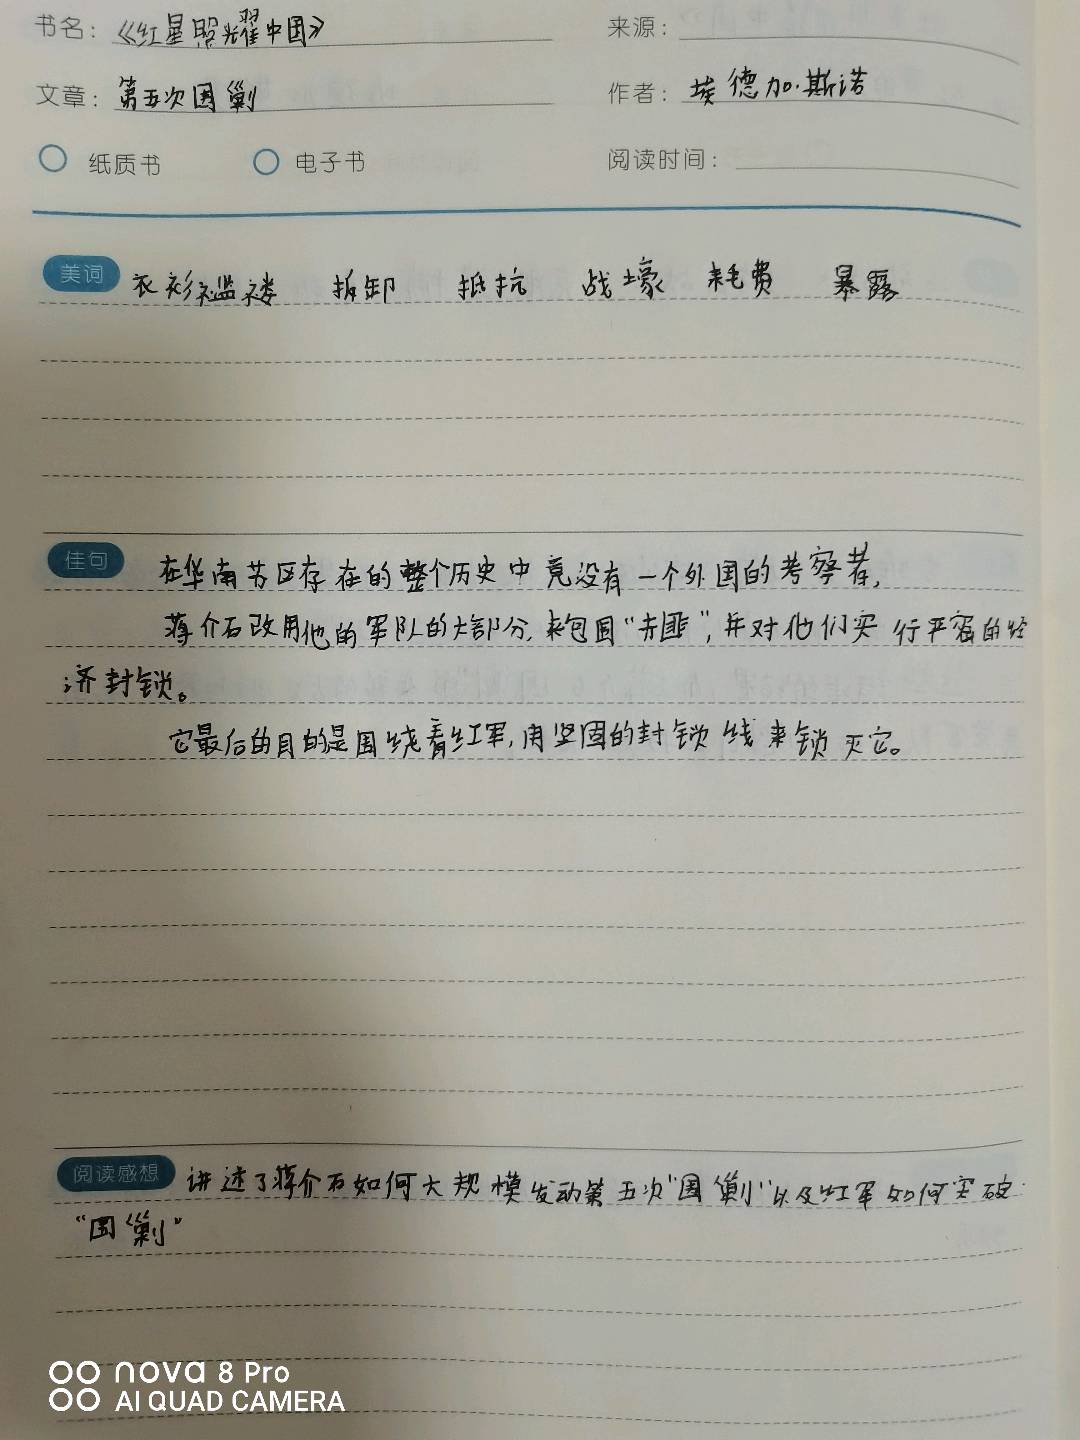 书名：《红星照耀中国》 来源：
文章：第五次围剿 作者：埃德加·斯诺
纸质书 电子书 阅读时间：
美词 衣衫褴褛 拆卸 抵抗 战壕 耗费 暴露
佳句 在华南苏区存在的整个历史中竟没有一个外国的考察者，
蒋介石改用他的军队的大部分，来包围“赤匪”，并对他们实行严密的经
济封锁。
它最后的目的是围绕着红军，用坚固的封锁线来锁灭它。
阅读感想 讲述了蒋介石如何大规模发动第五次“围剿”以及红军如何突破
“围剿”
nova 8 Pro
AI QUAD CAMERA